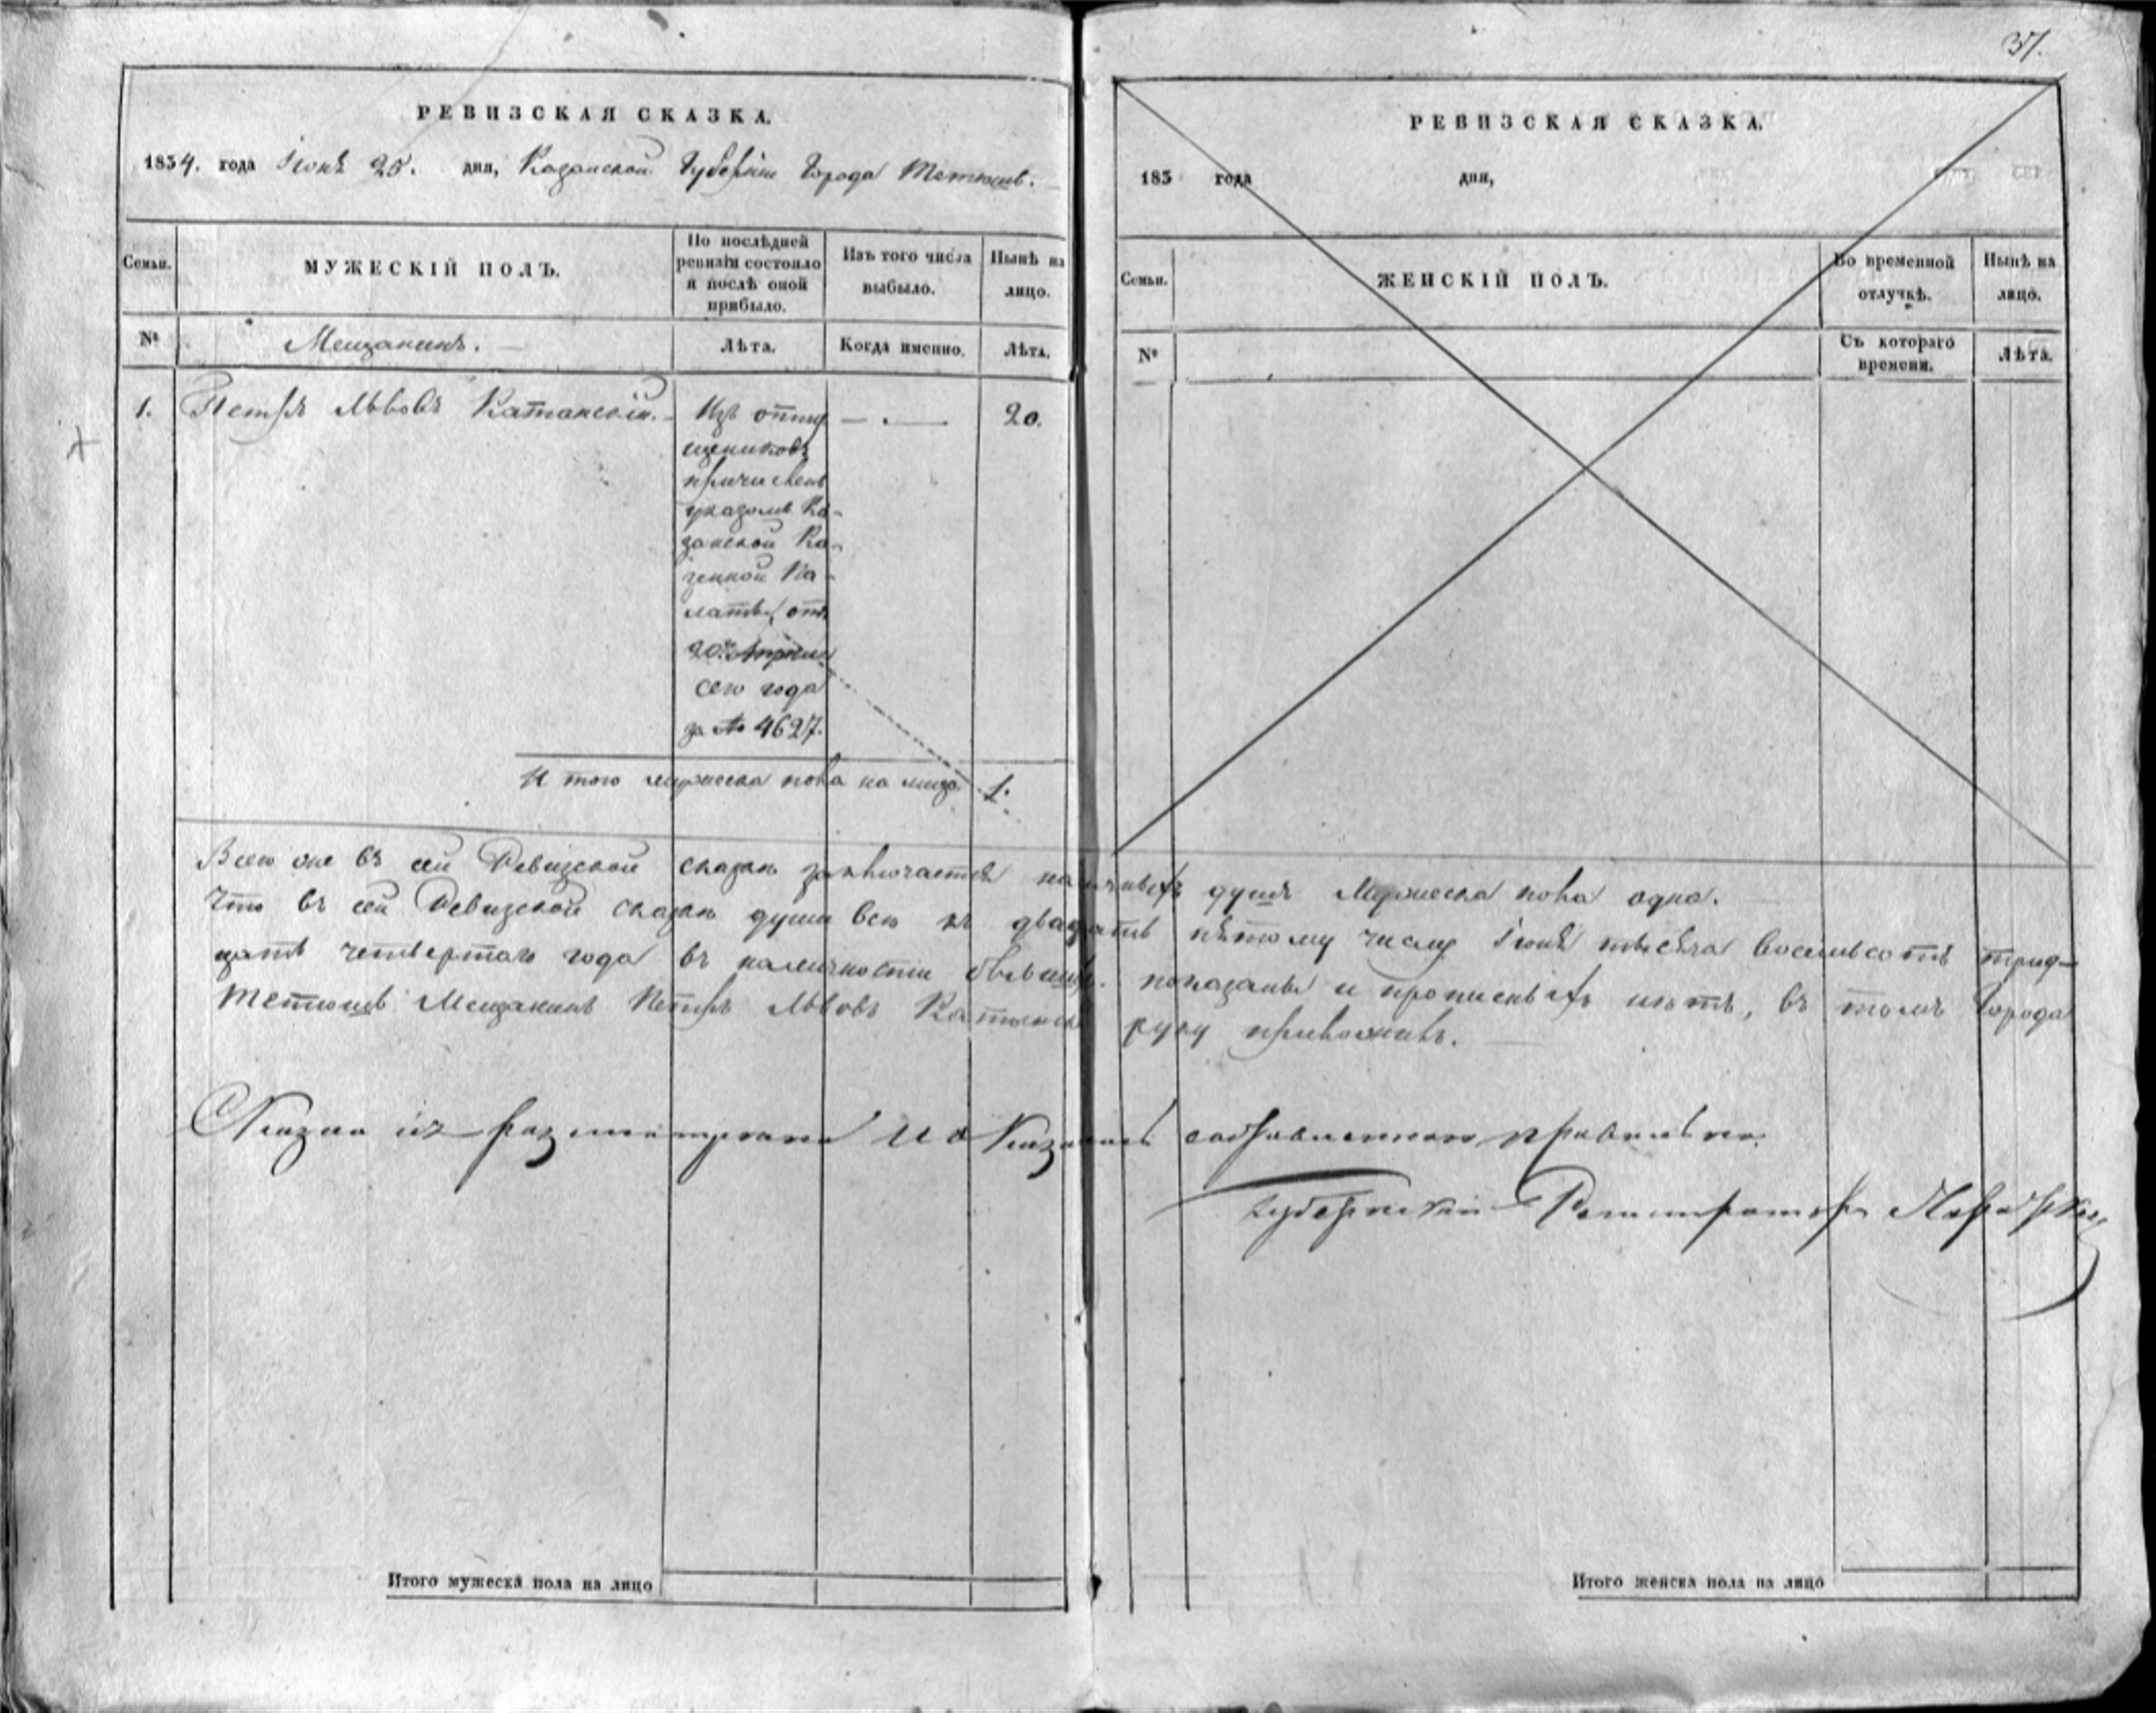 37.
РЕВИЗСКАЯ СКАЗКА.
1834. года Іюня 25. дня, Казанской Губерніи Города Тетюшъ.
Семьи.
МУЖЕСКІЙ ПОЛЪ.
По послѣдней ревизіи состояло и послѣ оной прибыло.
Изъ того числа выбыло.
Нынѣ на лицо.
№
Мещанинъ.
Лѣта.
Когда именно.
Лѣта.
1. Петръ Львовъ Катанскій.
Изъ отпу
щениковъ
причисленъ
указомъ Ка-
занской Ка-
зенной Па-
латы, отъ
20го Апрѣля
сего года
за № 4627.
20.
И того мужеска пола на лицо 1.
РЕВИЗСКАЯ СКАЗКА.
183 года дня,
Семьи.
ЖЕНСКІЙ ПОЛЪ.
Во временной отлучкѣ.
Нынѣ на лицо.
№
Съ котораго времени.
Лѣта.
Всего же въ сей Ревизской сказкѣ заключается наличныхъ душъ Мужеска пола одна.
Что въ сей Ревизской сказкѣ души всѣ къ двадцать пятому числу Іюня тысяча восемьсотъ трид-
цать четвертаго года въ наличности бывшія показаны и прописныхъ нѣтъ, въ томъ Города
Тетюшъ Мещанинъ Петръ Львовъ Катанскій руку приложилъ.
Сказка сія разсматривана и оказалась составленною правильно.
Губернскій Регистраторъ
Итого мужеска пола на лицо
Итого женска пола на лицо